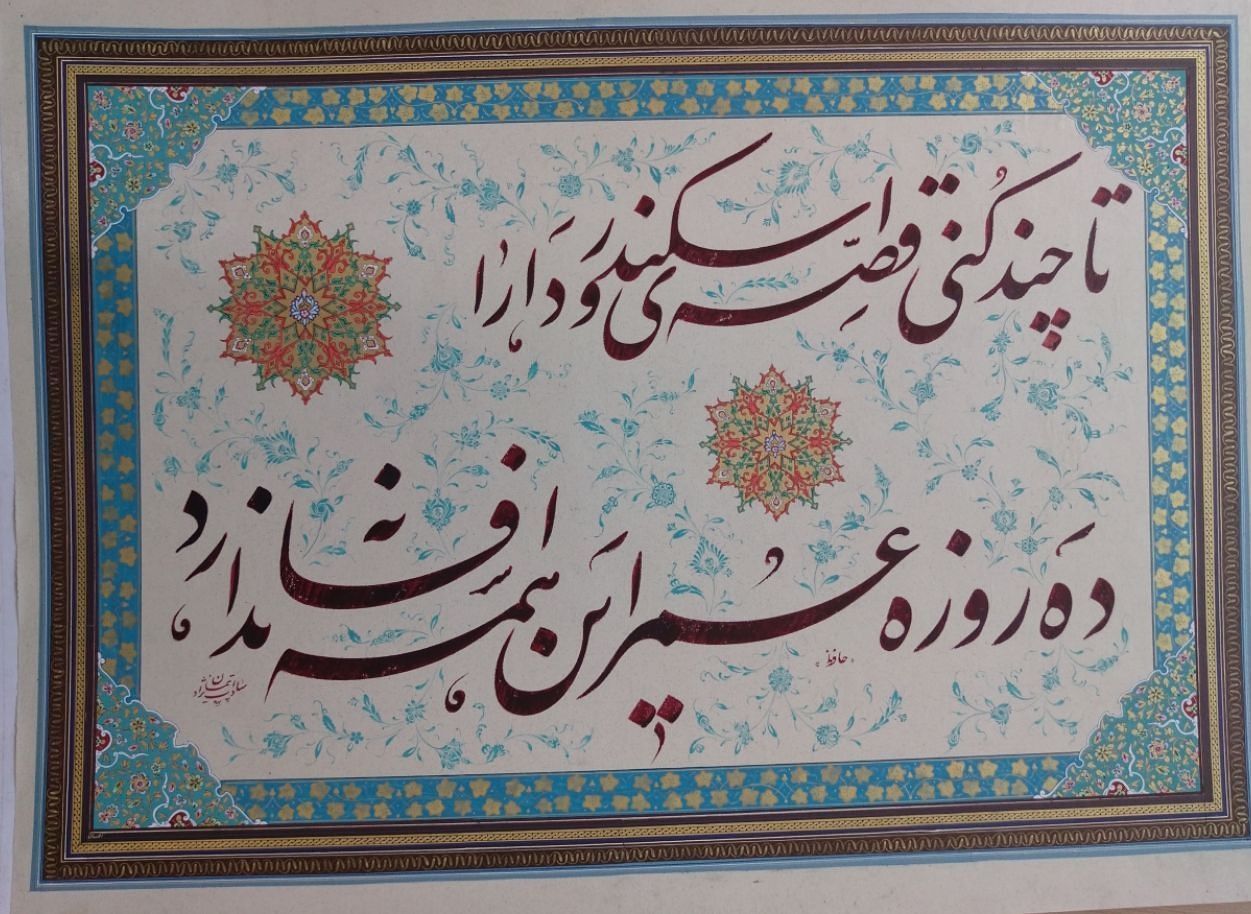 تا چند کنی قصّه‌ی اسکندر و دارا
ده روزه عمر این همه افسانه ندارد
حافظ